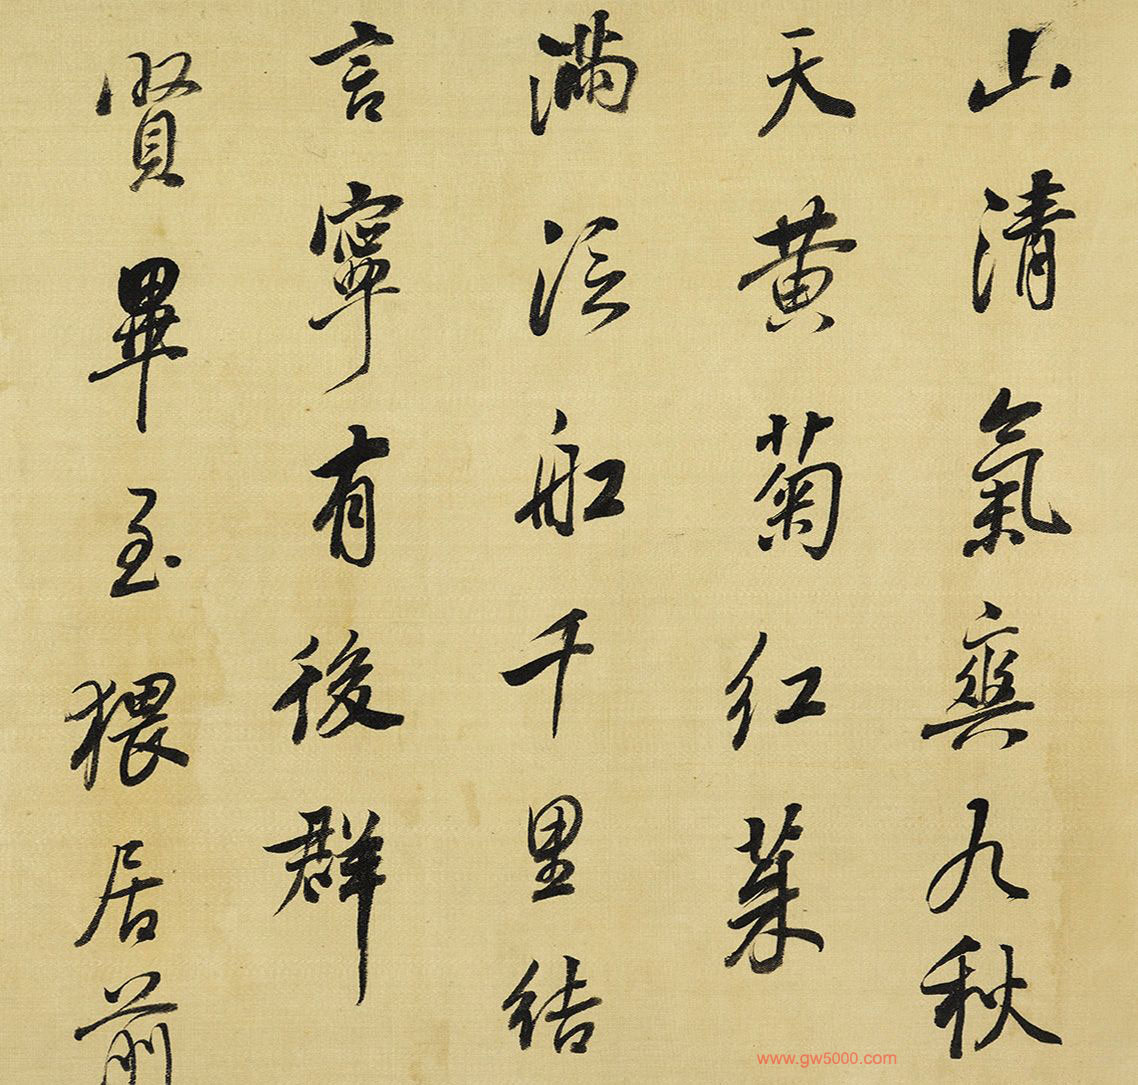 山清氣爽九秋
天黃菊紅茱
滿泛舡千里結
言寧有後群
賢畢至猥居前
www.gw5000.com